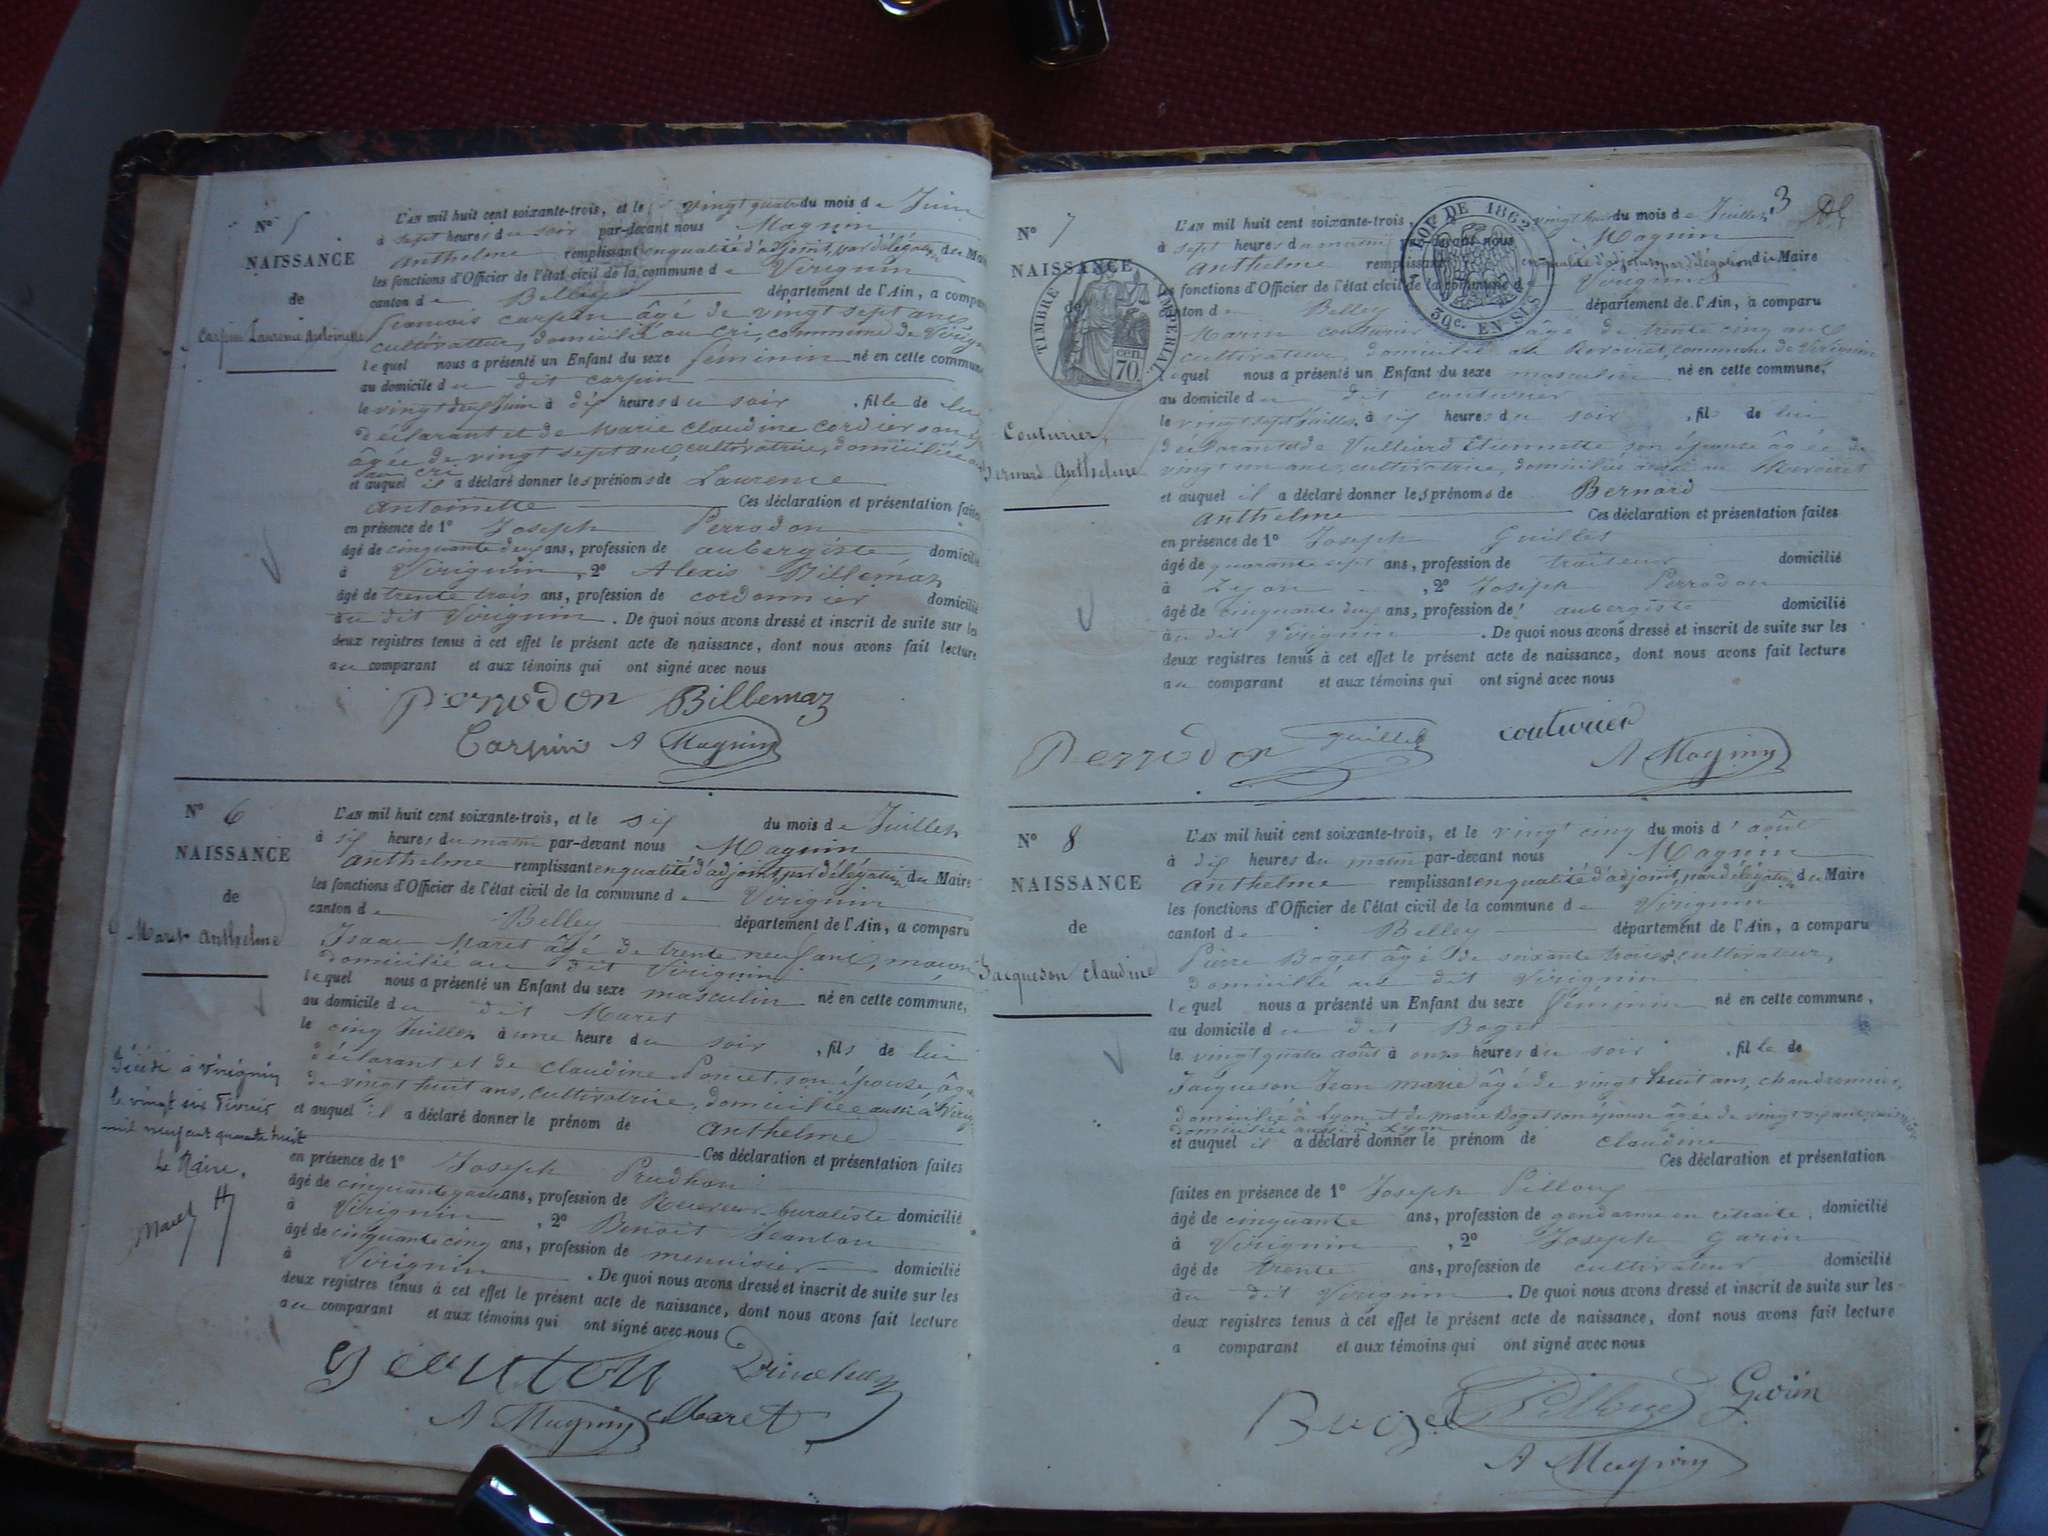 N° 5
NAISSANCE
de
Carpin Laurence Antoinette
L'AN mil huit cent soixante-trois, et le vingt quatre du mois de Juin
à sept heures du soir par-devant nous Magnin
Anthelme remplissant en qualité d'adjoint, par délégation du Maire
les fonctions d'Officier de l'état civil de la commune de Virignin
canton de Belley département de l'Ain, a comparu
françois carpin âgé de vingt sept ans
cultivateur, domicilié au cri, commune de Virignin
lequel nous a présenté un Enfant du sexe féminin né en cette commune
au domicile du dit carpin
le vingt deux Juin à dix heures du soir, fille de lui
déclarant et de Marie claudine cordier son
âgée de vingt sept ans, cultivatrice, domiciliée
au cri
et auquel il a déclaré donner les prénoms de Laurence
Antoinette Ces déclaration et présentation faites
en présence de 1° Joseph Perrodon
âgé de cinquante deux ans, profession de aubergiste domicilié
à Virignin, 2° Alexis Billemaz
âgé de trente trois ans, profession de cordonnier domicilié
au dit Virignin. De quoi nous avons dressé et inscrit de suite sur les
deux registres tenus à cet effet le présent acte de naissance, dont nous avons fait lecture
au comparant et aux témoins qui ont signé avec nous
Perrodon Billemaz
Carpin A Magnin
N° 6
NAISSANCE
de
Maret Anthelme
L'AN mil huit cent soixante-trois, et le six du mois de Juillet
à six heures du matin par-devant nous Magnin
Anthelme remplissant en qualité d'adjoint, par délégation du Maire
les fonctions d'Officier de l'état civil de la commune de Virignin
canton de Belley département de l'Ain, a comparu
Isaac Maret âgé de trente neuf ans, maçon
domicilié au dit Virignin
lequel nous a présenté un Enfant du sexe masculin né en cette commune,
au domicile du dit Maret
le cinq Juillet à une heure du soir, fils de lui
déclarant et de claudine Poncet son épouse, âgée
de vingt huit ans, cultivatrice, domiciliée aussi à Virig
et auquel il a déclaré donner le prénom de Anthelme
Ces déclaration et présentation faites
en présence de 1° Joseph Prudhon
âgé de cinquante quatre ans, profession de Receveur buraliste domicilié
à Virignin, 2° Benoit Jeantou
âgé de cinquante cinq ans, profession de menuisier domicilié
à Virignin. De quoi nous avons dressé et inscrit de suite sur les
deux registres tenus à cet effet le présent acte de naissance, dont nous avons fait lecture
au comparant et aux témoins qui ont signé avec nous
Décédé à Virignin
le vingt six Février
mil neuf cent quarante huit
Le Maire,
Maret
A Magnin Maret
3
N° 7
NAISSANCE
de
Couturier,
Bernard Anthelme
TIMBRE IMPERIAL
70 cen
LOI DE 1862
30c. EN SUS
L'AN mil huit cent soixante-trois, vingt huit du mois de Juillet
à sept heures du matin par-devant nous Magnin
Anthelme remplissant en qualité d'adjoint, par délégation du Maire
les fonctions d'Officier de l'état civil de la commune de Virignin
canton de Belley département de l'Ain, a comparu
Marin couturier âgé de trente cinq ans
cultivateur, domicilié au commune de Virignin
lequel nous a présenté un Enfant du sexe masculin né en cette commune,
au domicile du dit couturier
le vingt sept Juillet à six heures du soir, fils de lui
déclarant et de Vulliard Etiennette son épouse âgée de
vingt ans, cultivatrice, domiciliée aussi au
et auquel il a déclaré donner les prénoms de Bernard
Anthelme Ces déclaration et présentation faites
en présence de 1° Joseph Guillet
âgé de quarante sept ans, profession de traiteur domicilié
à Lyon, 2° Joseph Perrodon
âgé de cinquante deux ans, profession de aubergiste domicilié
au dit Virignin. De quoi nous avons dressé et inscrit de suite sur les
deux registres tenus à cet effet le présent acte de naissance, dont nous avons fait lecture
au comparant et aux témoins qui ont signé avec nous
Perrodon Guillet couturier
A Magnin
N° 8
NAISSANCE
de
Jacqueson claudine
L'AN mil huit cent soixante-trois, et le vingt cinq du mois d'août
à dix heures du matin par-devant nous Magnin
Anthelme remplissant en qualité d'adjoint, par délégation du Maire
les fonctions d'Officier de l'état civil de la commune de Virignin
canton de Belley département de l'Ain, a comparu
Pierre Boget âgé de soixante trois, cultivateur,
domicilié au dit Virignin
lequel nous a présenté un Enfant du sexe féminin né en cette commune,
au domicile du dit Boget
le vingt quatre août à onze heures du soir, fille de
Jacqueson Jean marie âgé de vingt huit ans, chaudronnier,
domicilié à Lyon et de marie Boget son épouse âgée de vingt
domiciliée aussi à Lyon
et auquel il a déclaré donner le prénom de claudine
Ces déclaration et présentation
faites en présence de 1° Joseph Pilloux
âgé de cinquante ans, profession de gendarme en retraite, domicilié
à Virignin, 2° Joseph Garin
âgé de trente ans, profession de cultivateur domicilié
au dit Virignin. De quoi nous avons dressé et inscrit de suite sur les
deux registres tenus à cet effet le présent acte de naissance, dont nous avons fait lecture
a comparant et aux témoins qui ont signé avec nous
A Magnin